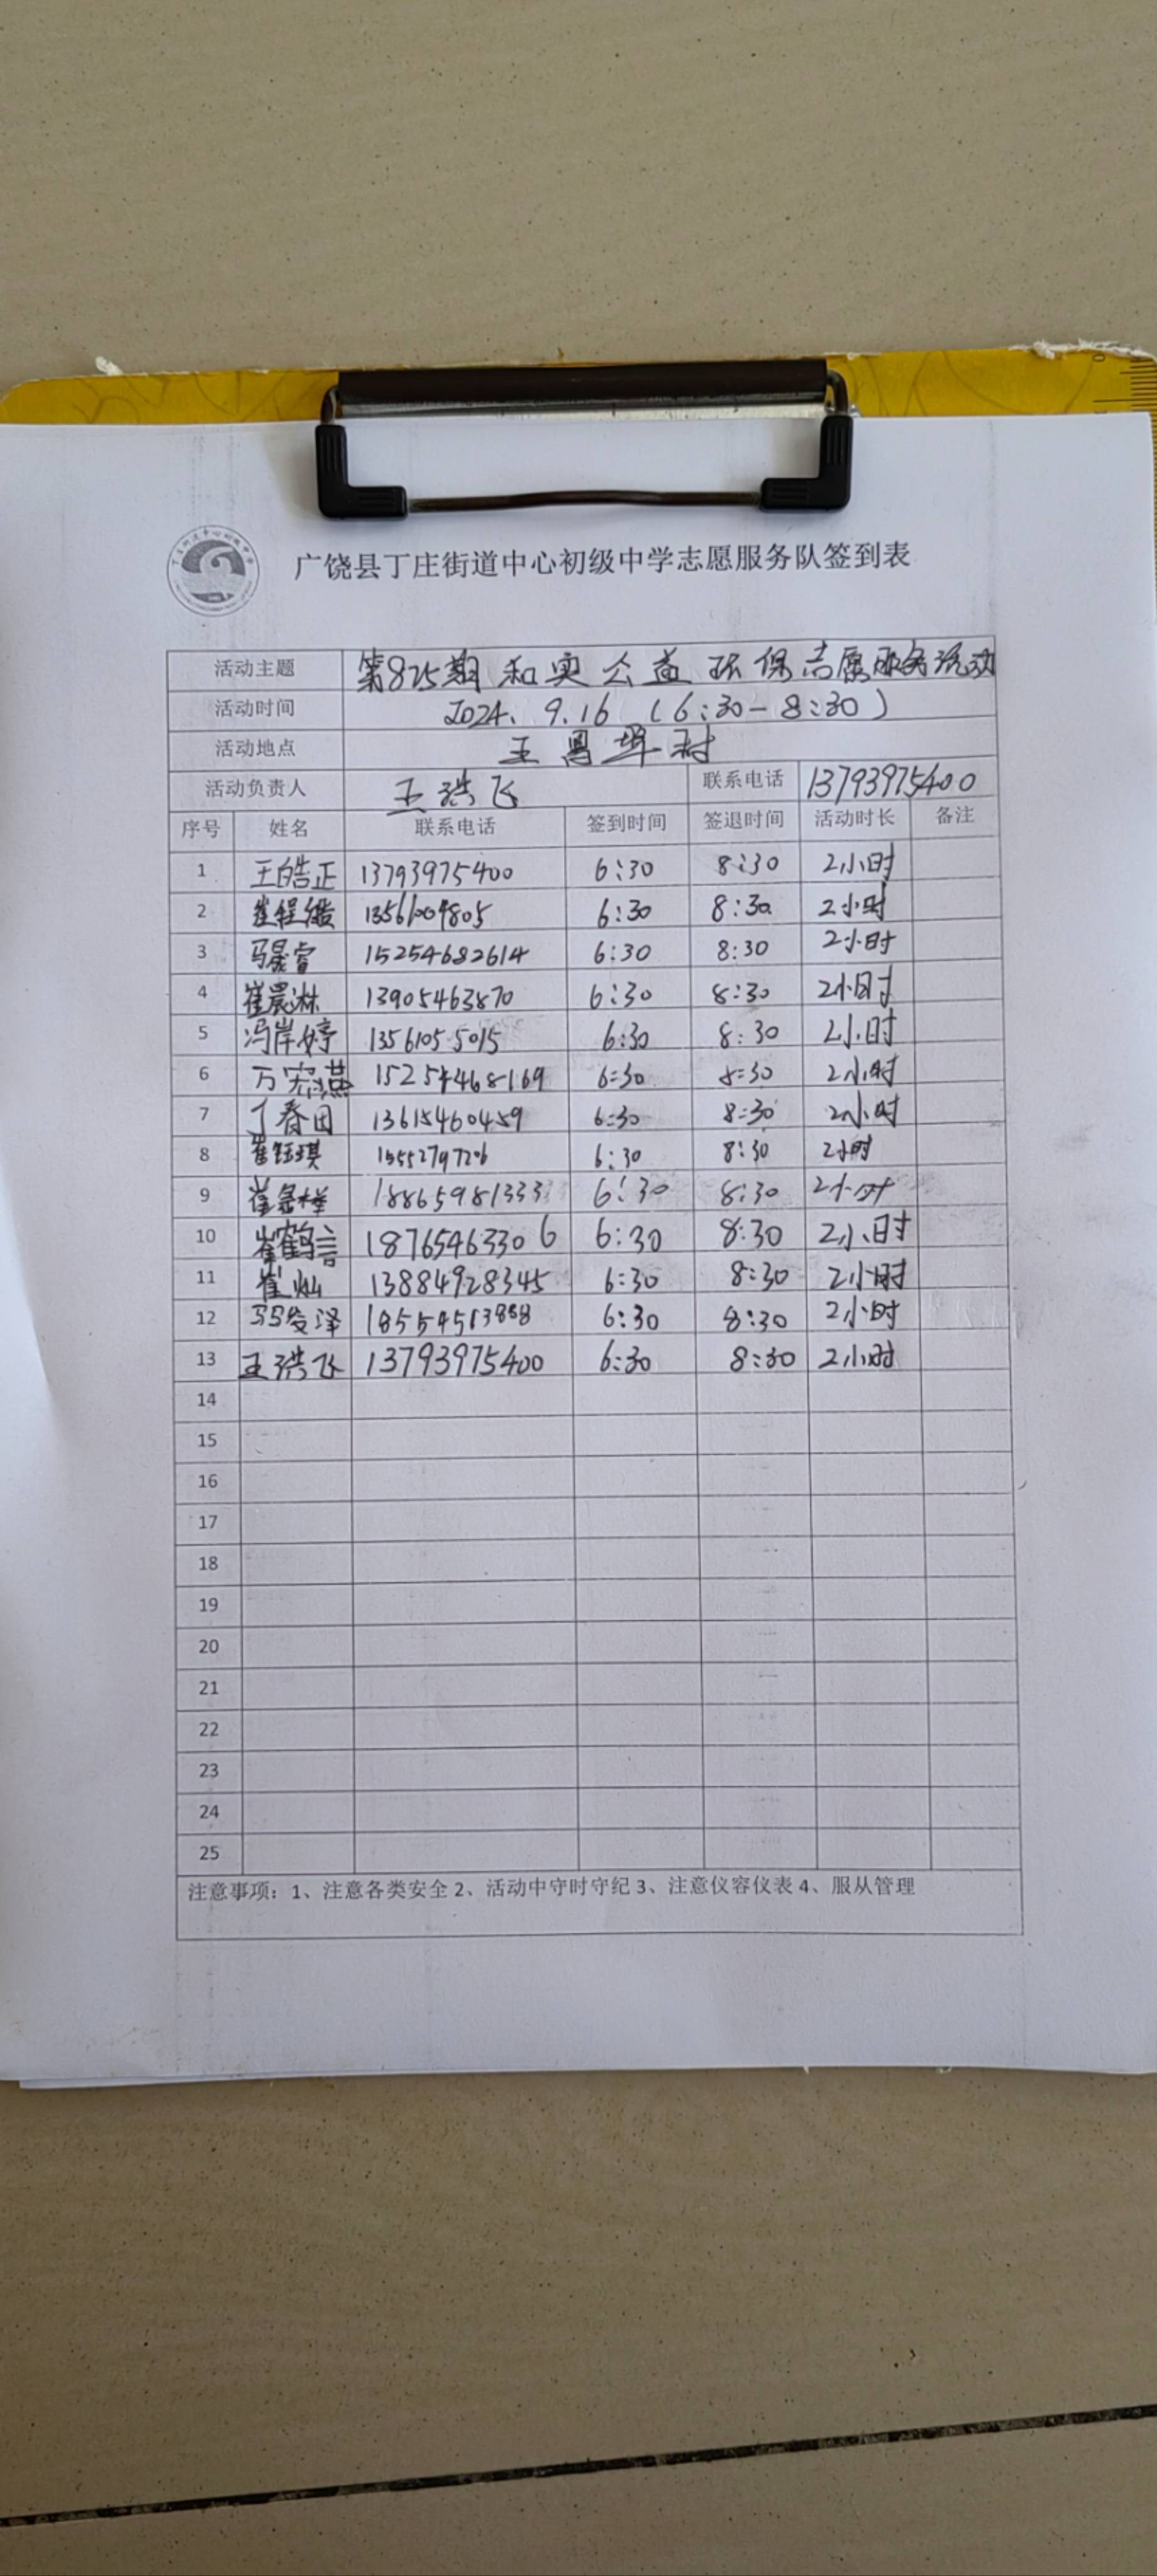 广饶县丁庄街道中心初级中学志愿服务队签到表
活动主题 第825期和实公益环保志愿服务活动
活动时间 2024. 9.16 (6:30-8:30)
活动地点 王 村
活动负责人 王洪飞 联系电话 13793975400
序号 姓名 联系电话 签到时间 签退时间 活动时长 备注
1 王皓正 13793975400 6:30 8:30 2小时
2 崔程 13561004805 6:30 8:30 2小时
3 马晟睿 15254682614 6:30 8:30 2小时
4 崔晨淋 13905463870 6:30 8:30 2小时
5 冯岸婷 13561055015 6:30 8:30 2小时
6 万 15254468169 6:30 8:30 2小时
7 丁春田 13615460459 6:30 8:30 2小时
8 崔钰琪 15552797206 6:30 8:30 2小时
9 崔 18865981333 6:30 8:30 2小时
10 崔鹤言 18765463306 6:30 8:30 2小时
11 崔灿 13884928345 6:30 8:30 2小时
12 马安泽 18554513888 6:30 8:30 2小时
13 王洪飞 13793975400 6:30 8:30 2小时
14
15
16
17
18
19
20
21
22
23
24
25
注意事项：1、注意各类安全 2、活动中守时守纪 3、注意仪容仪表 4、服从管理